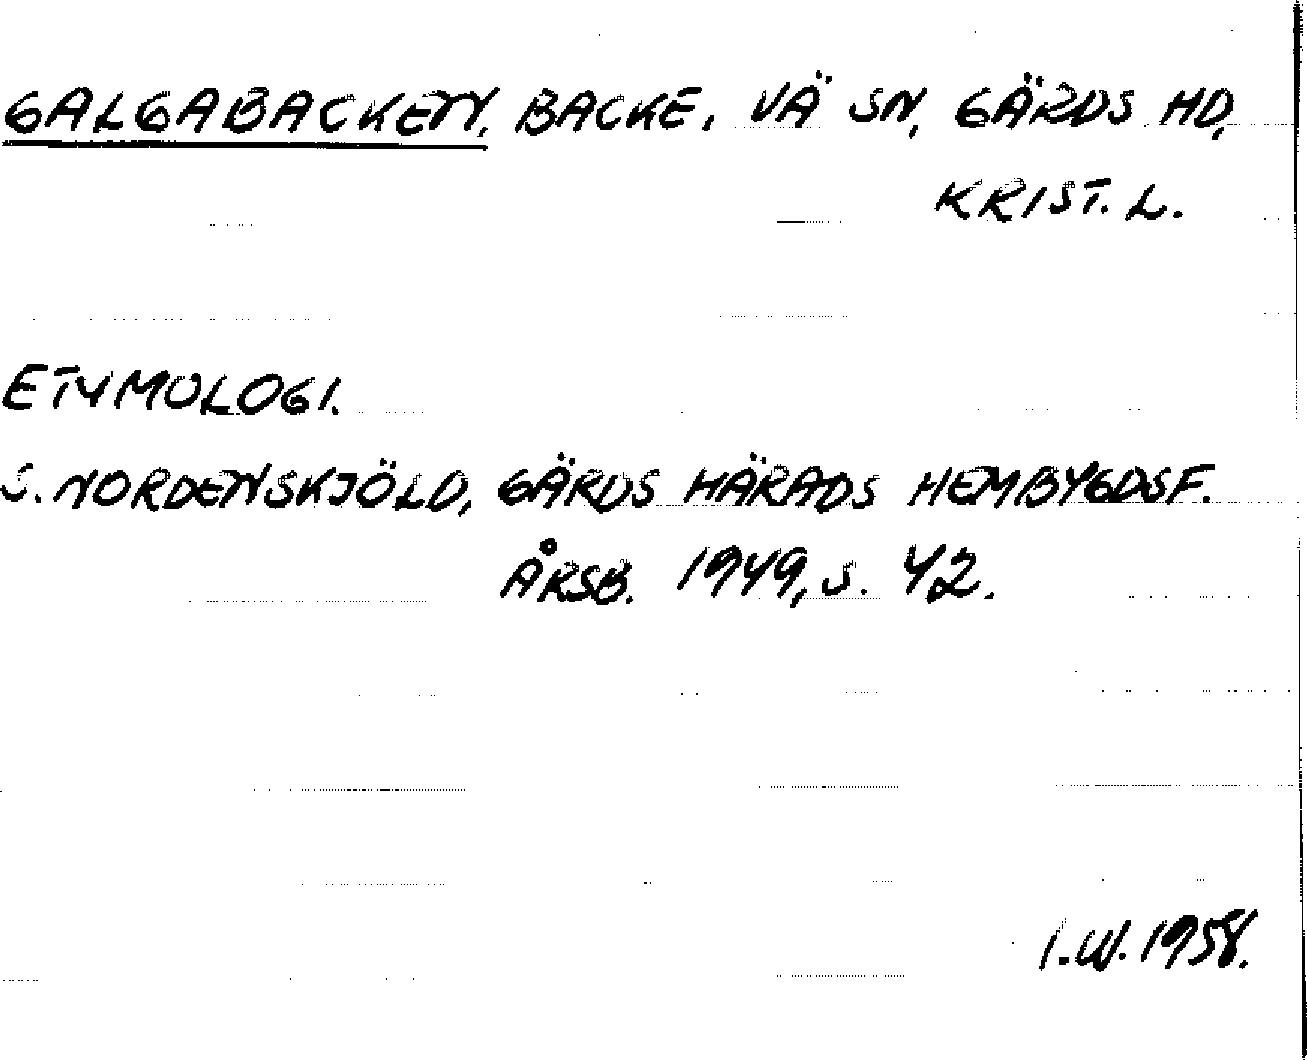 GALGABACKEN, BACKE, VÄ SN, GÄRDS HD,
KRIST. L.
ETYMOLOGI.
S. NORDENSKJÖLD, GÄRDS HÄRADS HEMBYGDSF.
ÅRSB. 1949, S. 42.
I.W. 1958.